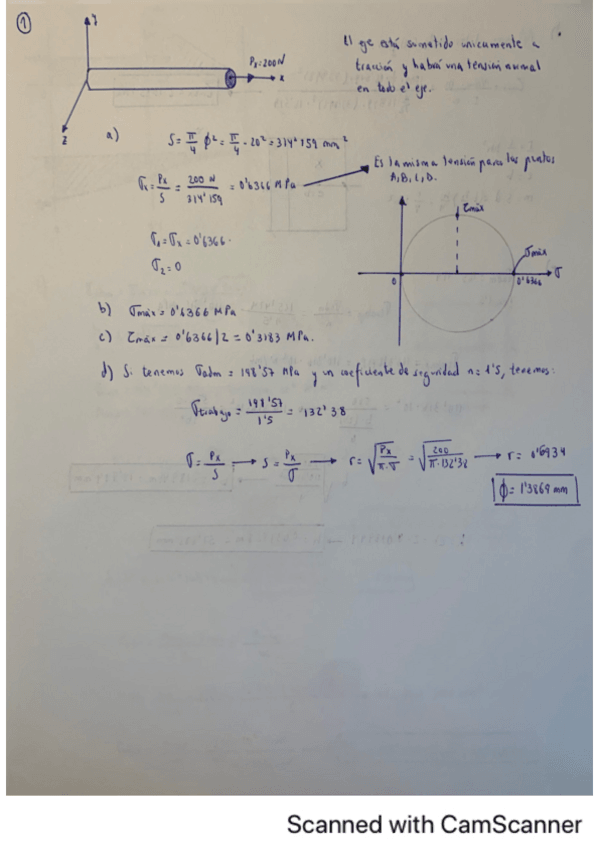 ①
y
Px=200N
x
z
El eje está sometido unicamente a
tracción y habrá una tensión normal
en todo el eje.
a)
S = π/4 φ² = π/4 · 20² = 314'159 mm²
Es la misma tensión para los puntos
A, B, C, D.
σx = Px/S = 200 N/314'159 = 0'6366 MPa
τmáx
σ1 = σx = 0'6366.
σmáx
σ2 = 0
0
0'6366
σ
b) σmáx = 0'6366 MPa
c) τmáx = 0'6366/2 = 0'3183 MPa.
d) Si tenemos σadm = 198'57 MPa y un coeficiente de seguridad n = 1'5, tenemos:
σtrabajo = 198'57/1'5 = 132'38
σ = Px/S → S = Px/σ → r = √(Px/π·σ) = √(200/π·132'38) → r = 0'6934
φ = 1'3869 mm
Scanned with CamScanner